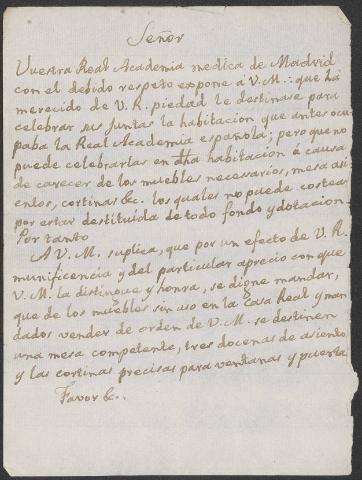 Señor
Vuestra Real Academia medica de Madrid
con el debido respeto expone a V.M.: que há
merecido de V. R. piedad le destinase para
celebrar sus Juntas la habitacion que antes ocu
paba la Real Academia española; pero que no
puede celebrarlas en dha habitacion á causa
de carecer de los muebles necesarios, mesa asi
entos, cortinas &c. los quales no puede costear
por estar destituída de todo fondo y dotacion.
Por tanto
A V. M. suplica, que por un efecto de V. R.
munificencia y del particular aprecio con que
V. M. la distingue y honra, se digne mandar,
que de los muebles sin uso en la Casa Real y man
dados vender de orden de V. M. se destinen
una mesa competente, tres docenas de asiento
y las cortinas precisas para ventanas y puerta
Favor &c.